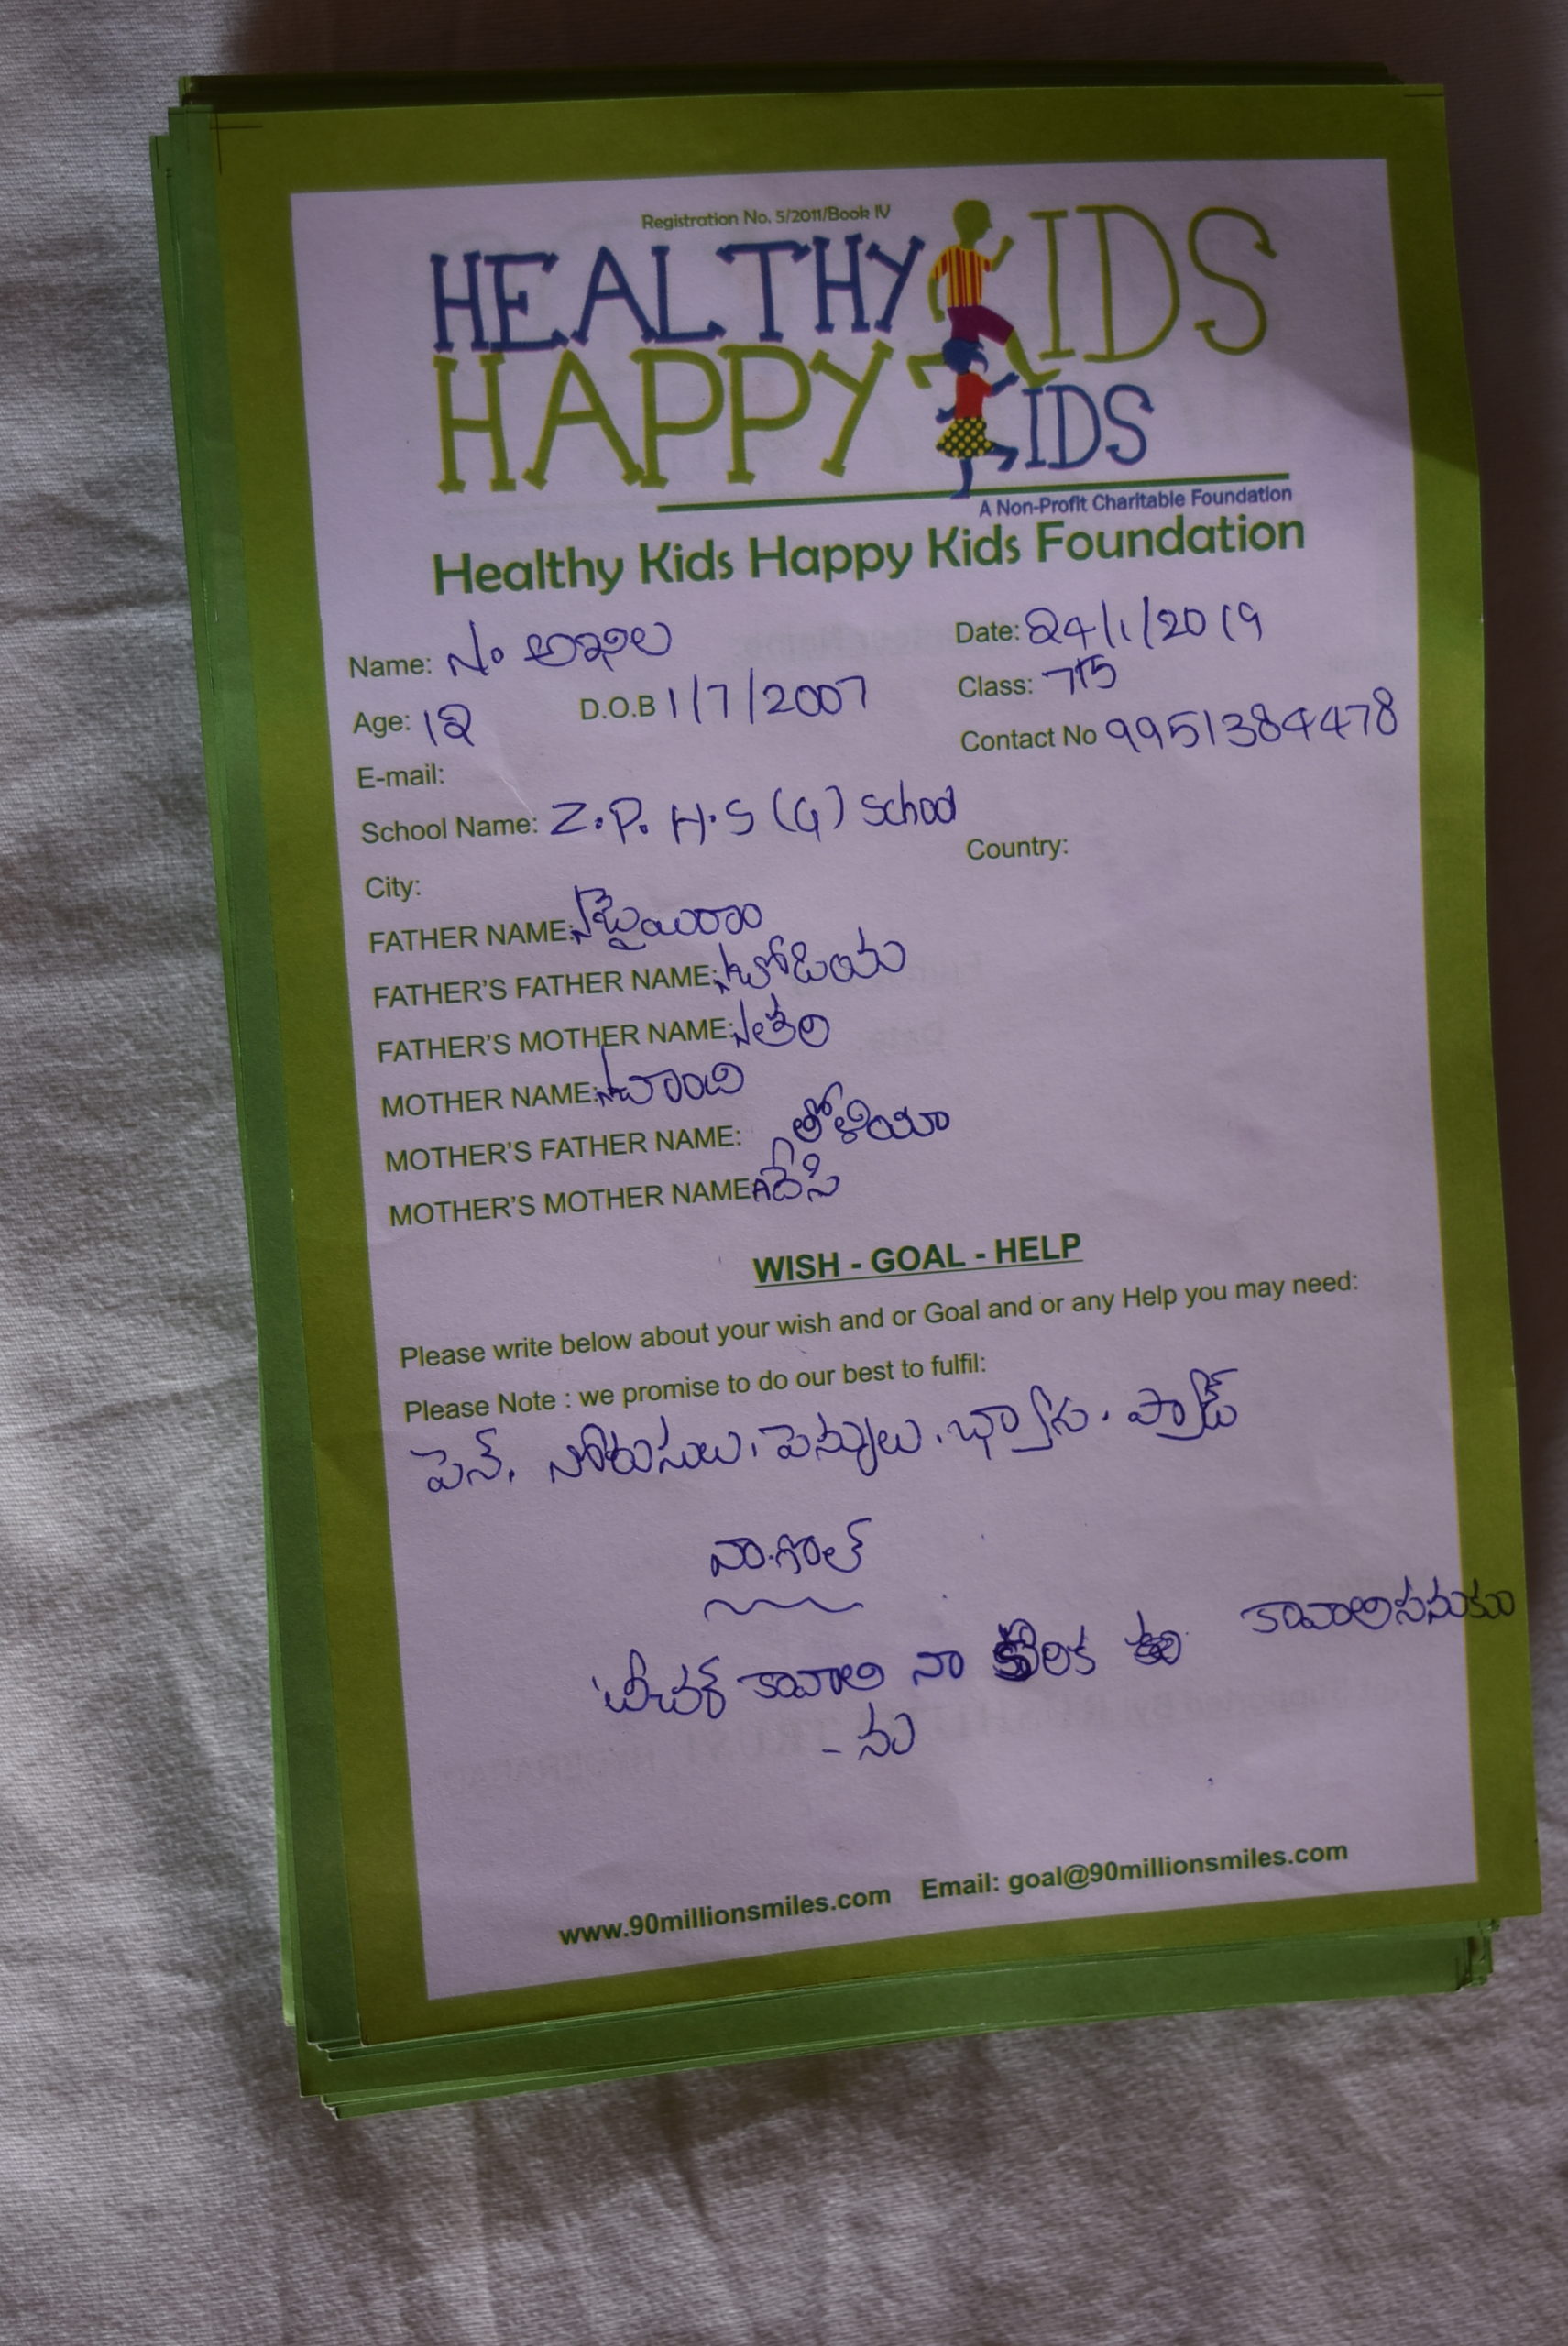 Registration No. 5/2011/Book IV
HEALTHY KIDS
HAPPY KIDS
A Non-Profit Charitable Foundation
Healthy Kids Happy Kids Foundation
Name: N. అఖిల Date: 24/1/2019
Age: 12 D.O.B 1/7/2007 Class: 7th
Contact No 9951384478
E-mail:
School Name: Z.P. H.S (G) School
City: Country:
FATHER NAME:
FATHER'S FATHER NAME:
FATHER'S MOTHER NAME:
MOTHER NAME:
MOTHER'S FATHER NAME: తోళియా
MOTHER'S MOTHER NAME: దేసి
WISH - GOAL - HELP
Please write below about your wish and or Goal and or any Help you may need:
Please Note : we promise to do our best to fulfil:
పెన్. పెన్సులు. ప్యాడ్
నా గోల్
టీచర్ కావాలి నా కోరిక కావాలిసనుకు
- ను
www.90millionsmiles.com Email: goal@90millionsmiles.com